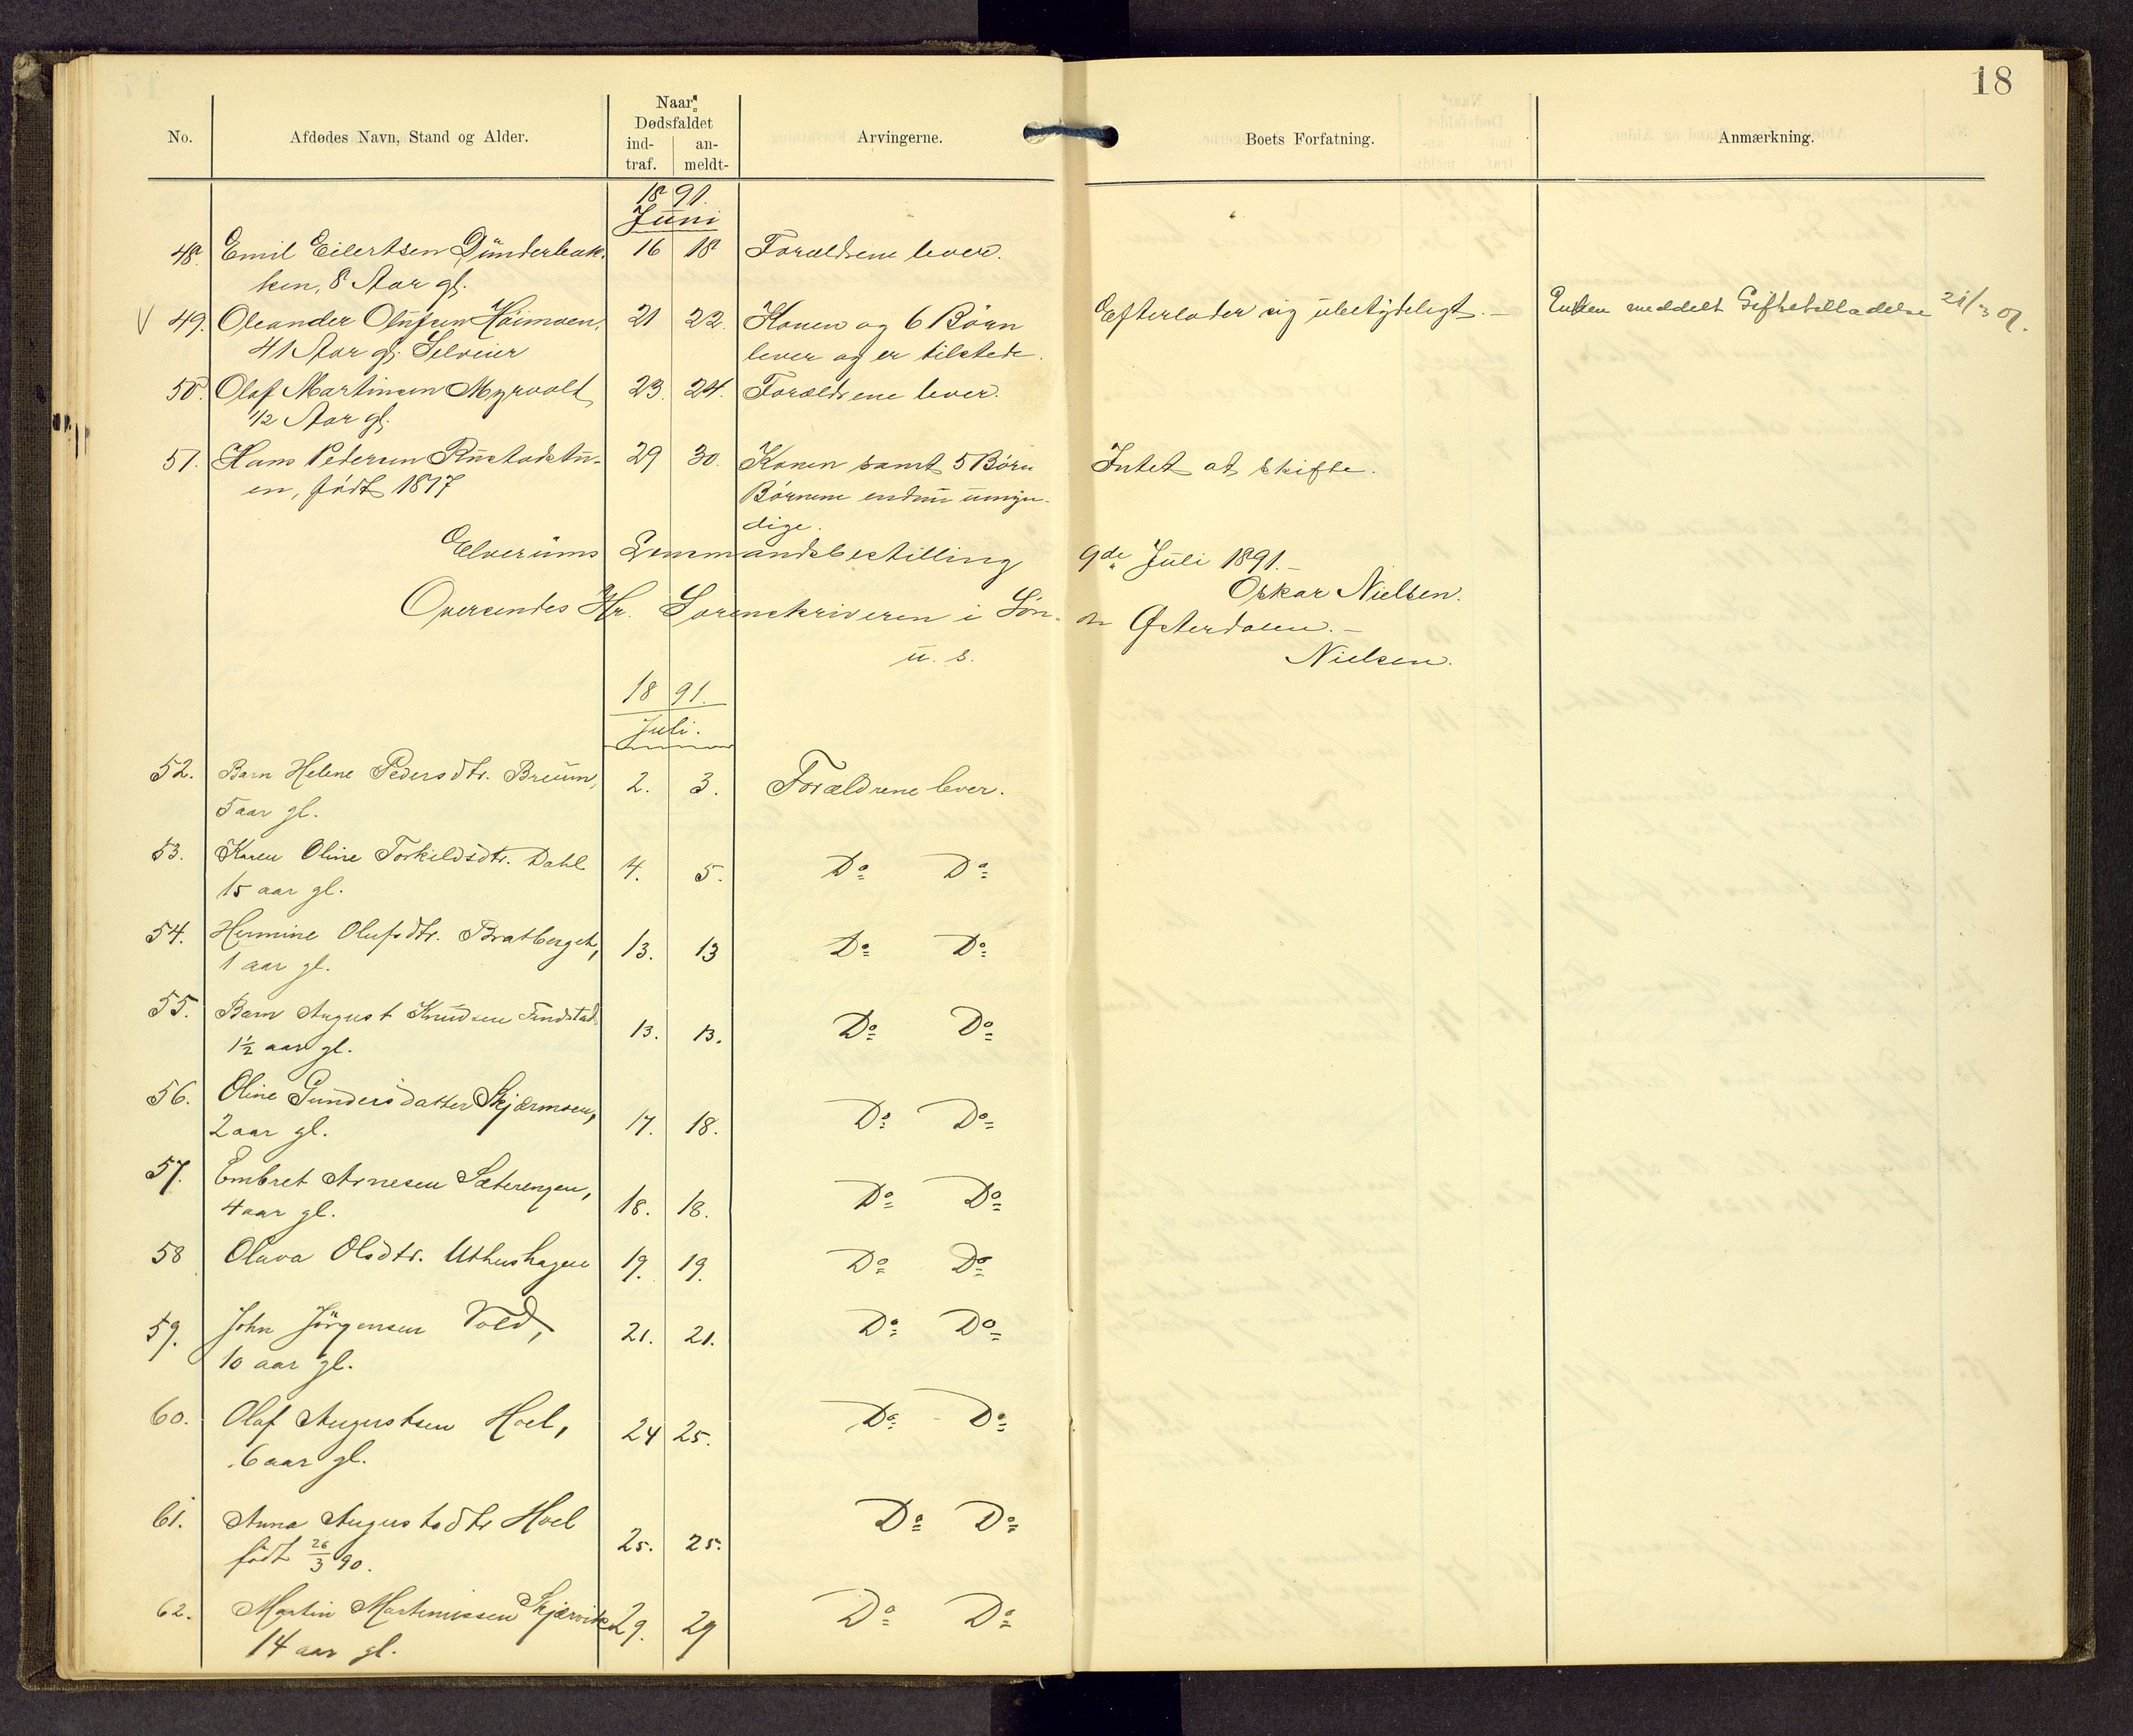 18
No. Afdødes Navn, Stand og Alder. Naar Dødsfaldet ind-traf. an-meldt- Arvingerne. Boets Forfatning. Anmærkning.
1891.
Juni
48. Emil Eilertsen Dünderbak- 16 18 Forældrene lever.
ken, 8 Aar gl.
V 49. Oleander Olüfsen Höimoen, 21 22. Konen og 6 Börn Efterlader sig übetydeligt. – Enken meddelt Giftetilladelse 21/3 07.
41 Aar gl. Selveier lever og er tilstede.
50. Olaf Martinsen Myrvold, 23. 24. Forældrene lever.
1/2 Aar gl.
51. Hans Pedersen Rüstadstü- 29 30. Konen samt 5 Börn Intet at skifte.
en, født 1817 Børnene endnü ümyn-
dige.
Elverüms Lensmandsbestilling 9de Jüli 1891. –
Oskar Nielsen.
Oversendes Hr. Sorenskriveren i Søn- dre Østerdalen. –
ü. s. Nielsen.
1891.
Juli.
52. Barn Helene Pedersdtr. Breüm, 2. 3. Forældrene lever.
5 aar gl.
53. Karen Oline Torkildsdtr. Dahl 4. 5. Do Do
15 aar gl.
54. Hermine Olufsdtr. Bratberget, 13. 13 Do Do
1 aar gl.
55. Barn August Knudsen Fundstad 13. 13. Do Do
1½ aar gl.
56. Oline Gundersdatter Skjærmoen, 17. 18. Do Do
2 aar gl.
57. Embret Arnesen Sæterengen, 18. 18. Do Do
4 aar gl.
58 Olava Olsdtr. Uthushagen 19. 19. Do Do
59. John Jörgensen Vold, 21. 21. Do Do
10 aar gl.
60. Olaf Augustsen Hoel, 24 25. Do Do
6 aar gl.
61. Anna Augustsdtr Hoel 25. 25. Do Do
födt 26/3 90.
62. Martin Martinussen Skjærvik 29. 29 Do Do
14 aar gl.